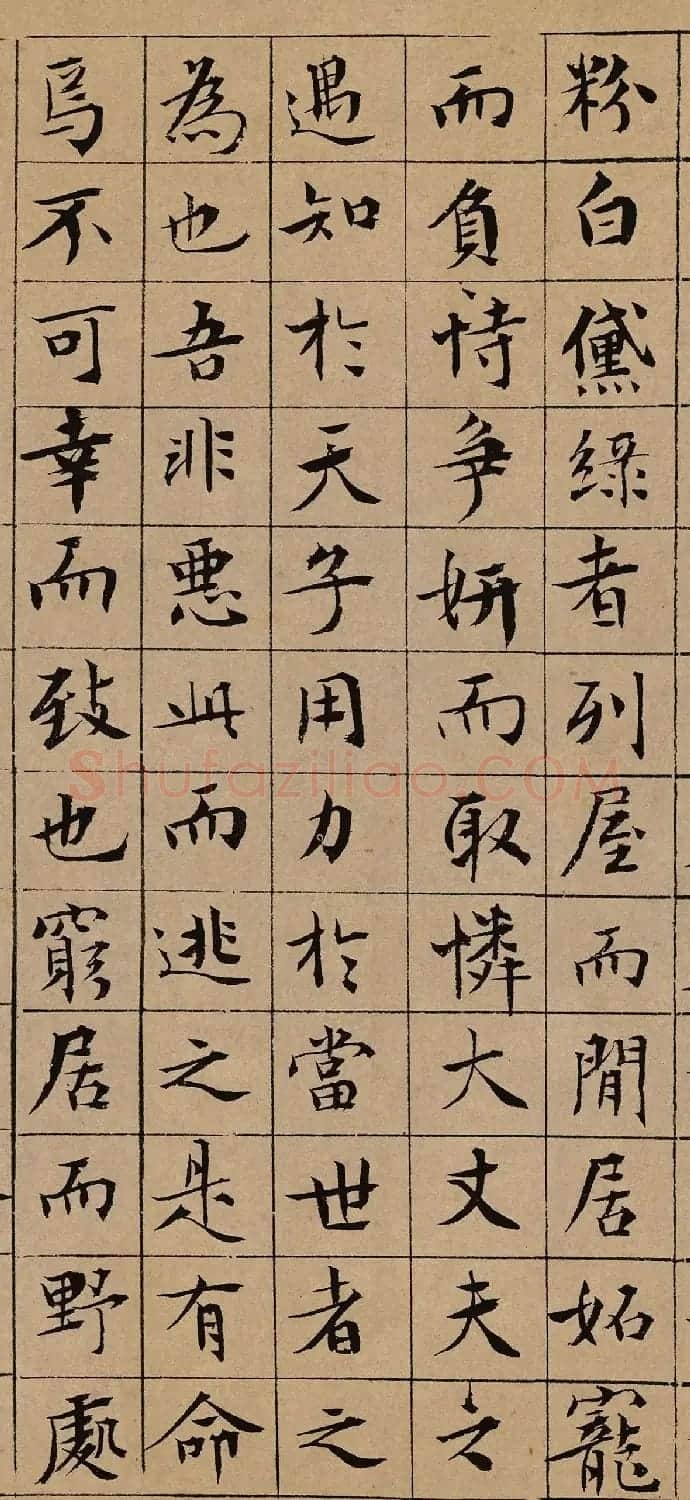 粉白黛綠者列屋而閒居妬寵
而負恃爭妍而取憐大丈夫之
遇知於天子用力於當世者之
為也吾非惡此而逃之是有命
焉不可幸而致也窮居而野處
Shufaziliao.COM